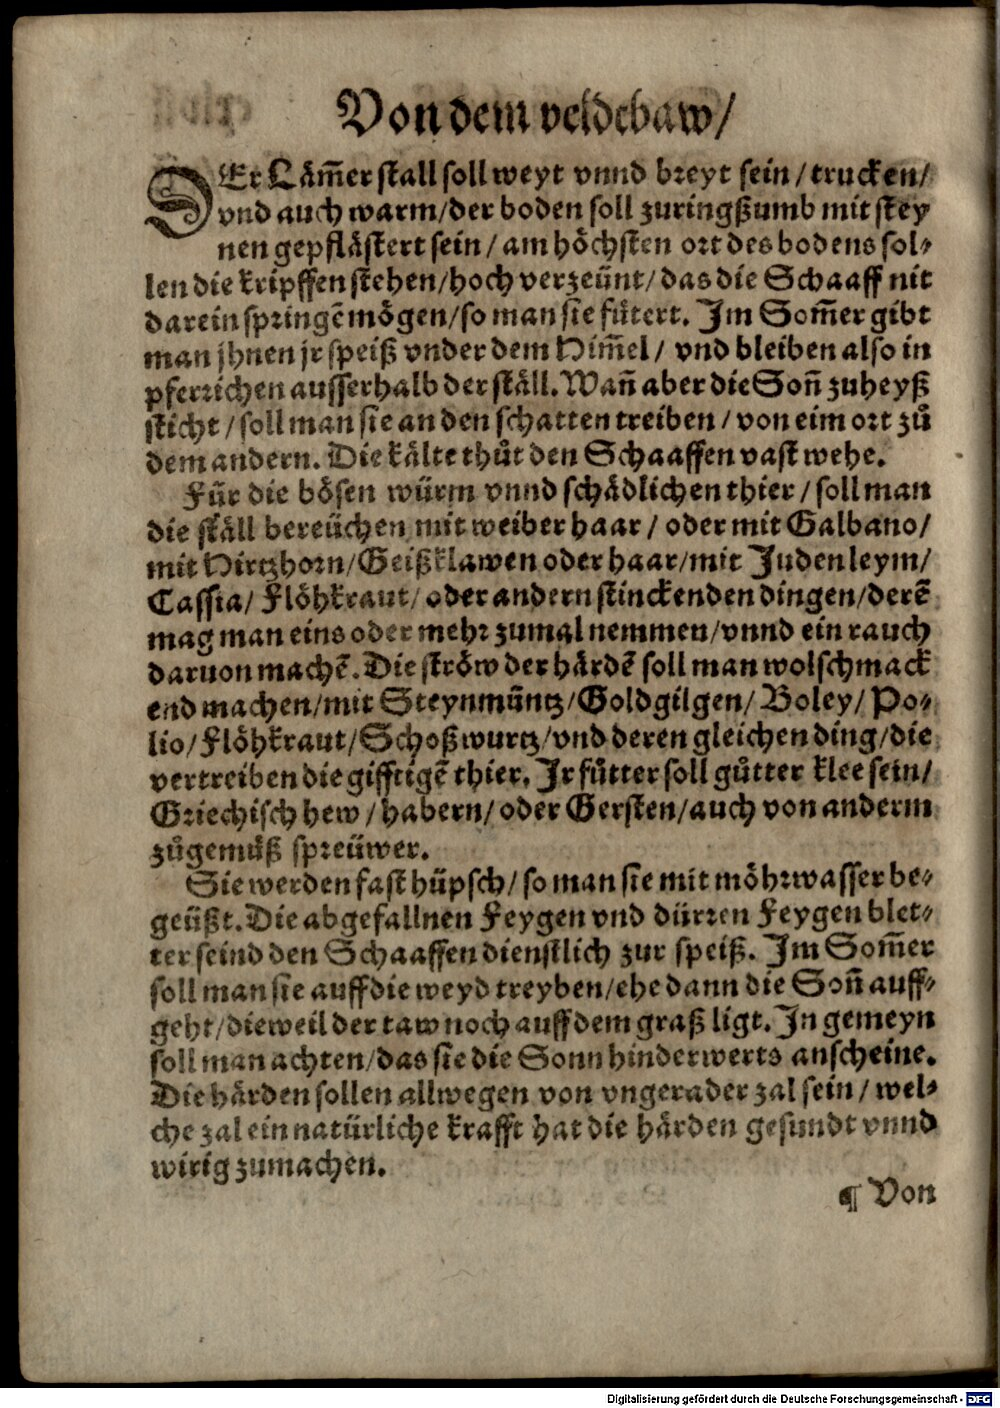 Von dem veldebaw/
DEr Läm̃er stall soll weyt vnnd breyt sein/trucken/
vnd auch warm/der boden soll zuringßumb mit stey
nen gepflästert sein/am höchsten ort des bodens sol⸗
len die kripffen stehen/hoch verzeünt/das die Schaaff nit
darein springẽ mögen/so man sie fůtert. Im Som̃er gibt
man jhnen jr speiß vnder dem Him̃el/ vnd bleiben also in
pferrichen ausserhalb der ställ. Wañ aber die Soñ zuheyß
sticht/soll man sie an den schatten treiben/von eim ort zů
dem andern. Die kälte thůt den Schaaffen vast wehe.
Für die bösen würm vnnd schädlichen thier/soll man
die ställ bereüchen mit weiber haar/oder mit Galbano/
mit Hirtzhorn/Geißklawen oder haar/mit Judenleym/
Cassia/Flöhkraut/oder andern stinckenden dingen/derẽ
mag man eins oder mehr zumal nemmen/vnnd ein rauch
daruon machẽ. Die ströw der härdẽ soll man wolschmack
end machen/mit Steynmüntz/Goldgilgen/Boley/Po⸗
lio/Flöhkraut/Schoßwurtz/vnd deren gleichen ding/die
vertreiben die gifftigẽ thier. Ir fůtter soll gůtter klee sein/
Griechisch hew/habern/oder Gersten/auch von anderm
zůgemůß spreüwer.
Sie werden fast hüpsch/so man sie mit möhrwasser be⸗
geüßt. Die abgefallnen Feygen vnd dürren Feygen blet⸗
ter seind den Schaaffen dienstlich zur speiß. Im Som̃er
soll man sie auff die weyd treyben/ehe dann die Soñ auff⸗
geht/dieweil der taw noch auff dem graß ligt. In gemeyn
soll man achten/das sie die Sonn hinderwerts anscheine.
Die härden sollen allwegen von vngerader zal sein/wel⸗
che zal ein natürliche krafft hat die härden gesundt vnnd
wirig zumachen.
¶ Von
Digitalisierung gefördert durch die Deutsche Forschungsgemeinschaft - DFG